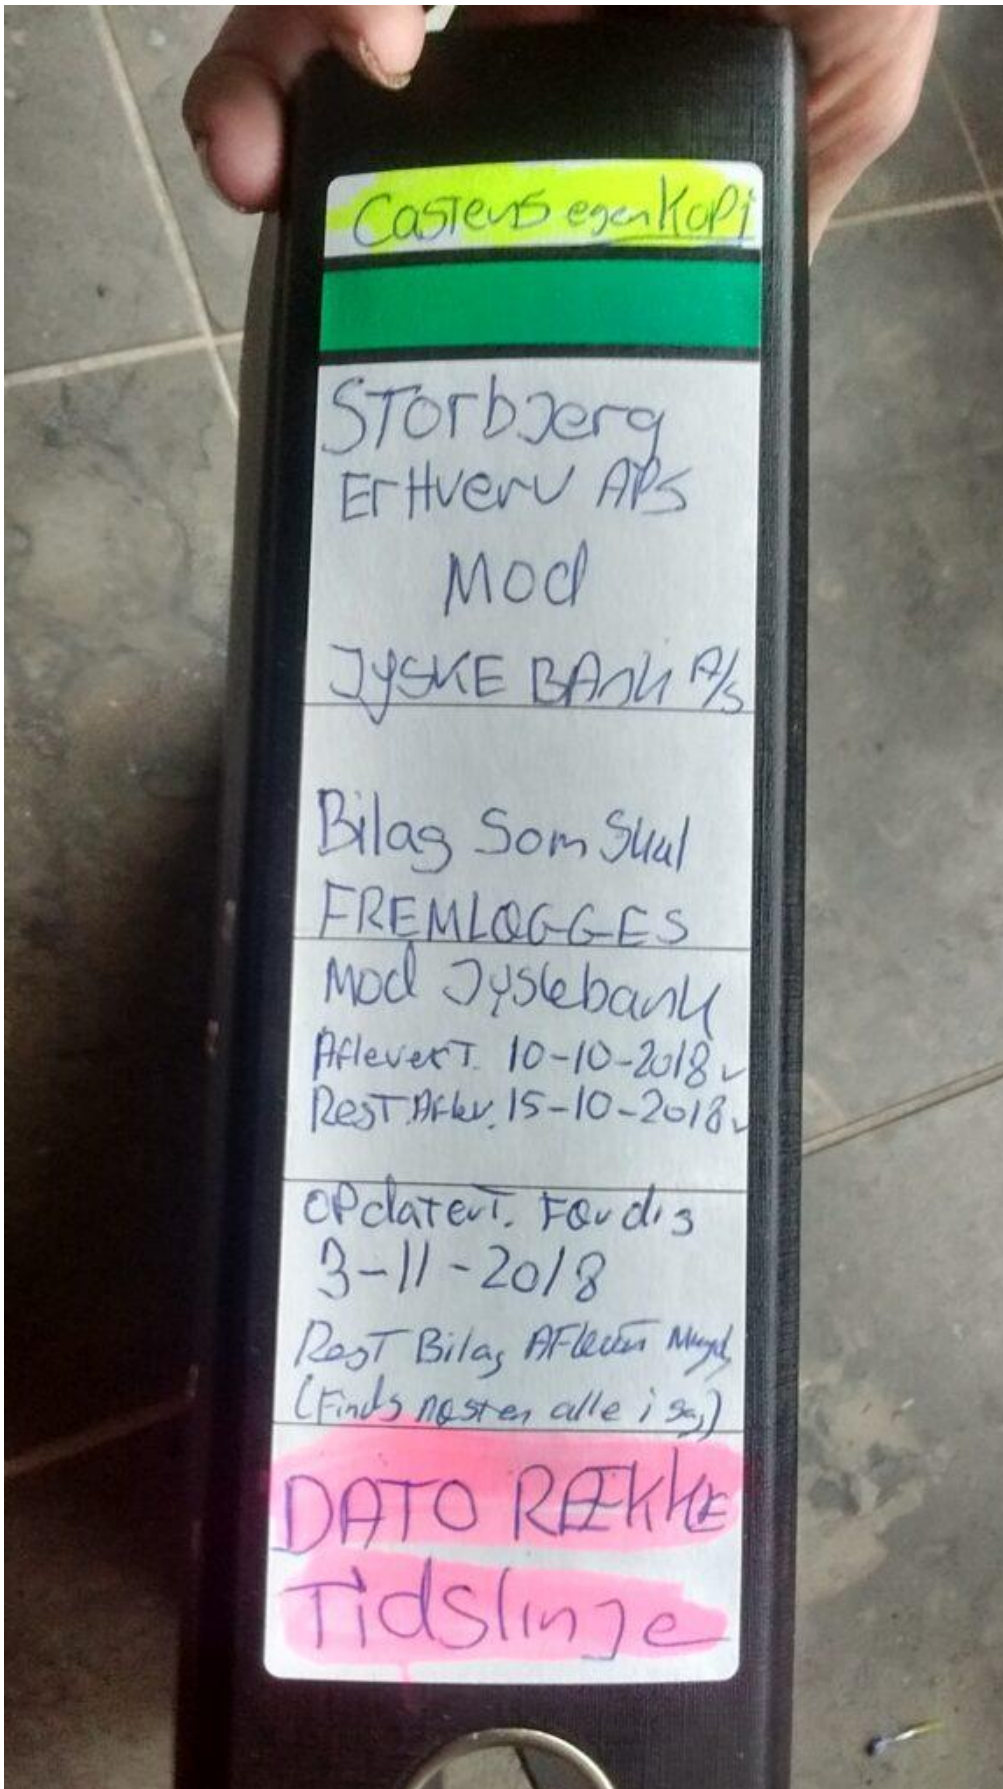 Castens egen Kopi
STorbjerg
ErHverv APS
Mod
JYSKE BAnk A/S
Bilag Som Skal
FREMLÆGGES
Mod Jyskebank
AfleverT. 10-10-2018
ResT.Aflev. 15-10-2018
OPdaterT. Færdig
3-11-2018
ResT Bilag AFlevert
(Finds næsten alle i sag)
DATO RÆKKE
Tidslinje